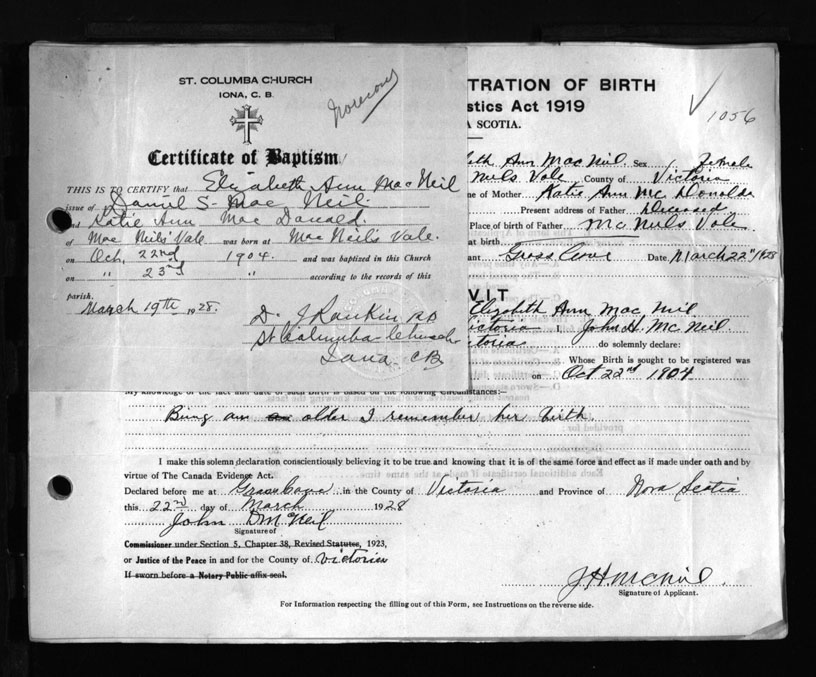 ST. COLUMBA CHURCH
IONA, C. B.
Certificate of Baptism
THIS IS TO CERTIFY that Elizabeth Ann MacNeil
issue of Daniel S. Mac Neil.
and Katie Ann Mac Donald.
of Mac Neils' Vale was born at Mac Neil's Vale.
on Oct. 22nd 1904. and was baptized in this Church
on " 23rd " according to the records of this
parish.
March 19th 1928.
D. J Rankin
St Columba Church
Iona CB
TRATION OF BIRTH
stics Act 1919
A SCOTIA.
1056
beth Ann Mac Neil. Sex Female
Neils Vale County of Victoria
me of Mother Katie Ann Mc Donald
Present address of Father Deceased
Place of birth of Father McNeils Vale.
at birth
ant Grass Cove Date March 22" 1928
VIT
Elizabeth Ann Mac Neil
Victoria I, John H. Mc Neil.
toria do solemnly declare:
Whose Birth is sought to be registered was
on Oct 22nd 1904
My knowledge of the fact and date of such Birth is based on the following Circumstances:—
Being an older I remember her birth.
I make this solemn declaration conscientiously believing it to be true and knowing that it is of the same force and effect as if made under oath and by
virtue of The Canada Evidence Act.
Declared before me at Grass Cove in the County of Victoria and Province of Nova Scotia
this 22nd day of March 1928
John D McNeil
Signature of
Commissioner under Section 5, Chapter 38, Revised Statutes, 1923,
or Justice of the Peace in and for the County of Victoria
If sworn before a Notary Public affix seal.
J H McNeil.
Signature of Applicant.
For Information respecting the filling out of this Form, see Instructions on the reverse side.